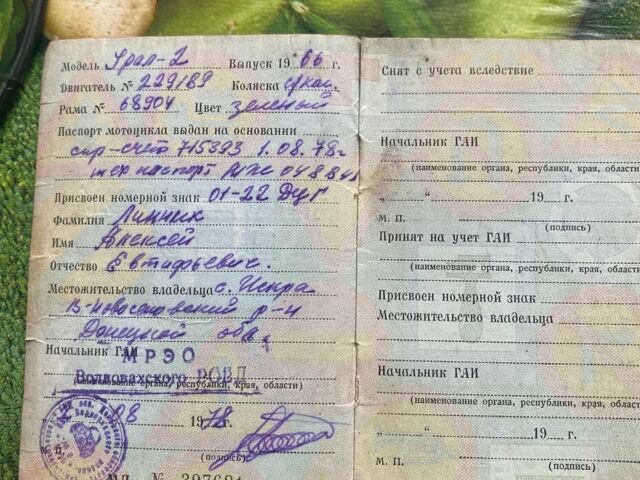 Модель Урал-2 Выпуск 1966 г.
Двигатель № 229189 Коляска с/кол.
Рама № 68904 Цвет зеленый
Паспорт мотоцикла выдан на основании
спр-счёт 715393 1.08.78г
тех паспорт
Присвоен номерной знак 01-22 ДУГ
Фамилия Линник
Имя Алексей
Отчество Евтифьевич.
Местожительство владельца с. Искра
В-Новоселковский р-н
Донецкой обл.
Начальник ГАИ
МРЭО
Волновахского РОВД
(наименование органа, республики, края, области)
08 1978
(подпись)
МД №
Снят с учета вследствие
Начальник ГАИ
(наименование органа, республики, края, области
„ “ 19 г.
М. П.
(подпись)
Принят на учет ГАИ
(наименование органа, республики, края, области
Присвоен номерной знак
Местожительство владельца
Начальник ГАИ
(наименование органа, республики, края, области
„ “ 19 г.
М. П.
(подпись)